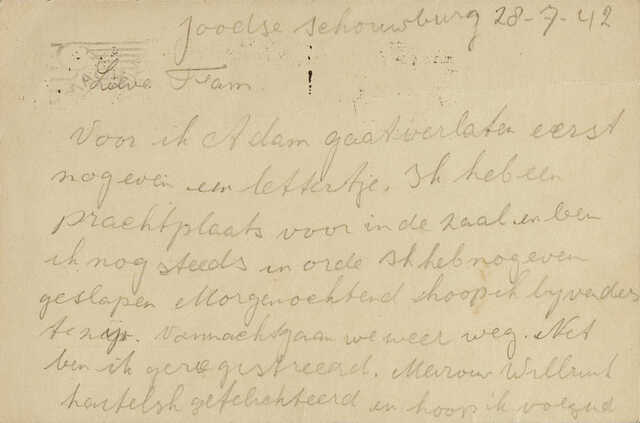 Joodse schouwburg 28-7-42
Lieve Fam.
Voor ik A'dam gaat verlaten eerst
nog even een lettertje. Ik heb een
prachtplaats voor in de zaal en ben
ik nog steeds in orde Ik heb nog even
geslapen Morgenochtend hoop ik bij vader
te zijn. Vannacht gaan we weer weg. Net
ben ik geregistreerd. Mevrouw
hartelijk gefeliciteerd en hoop ik volgend